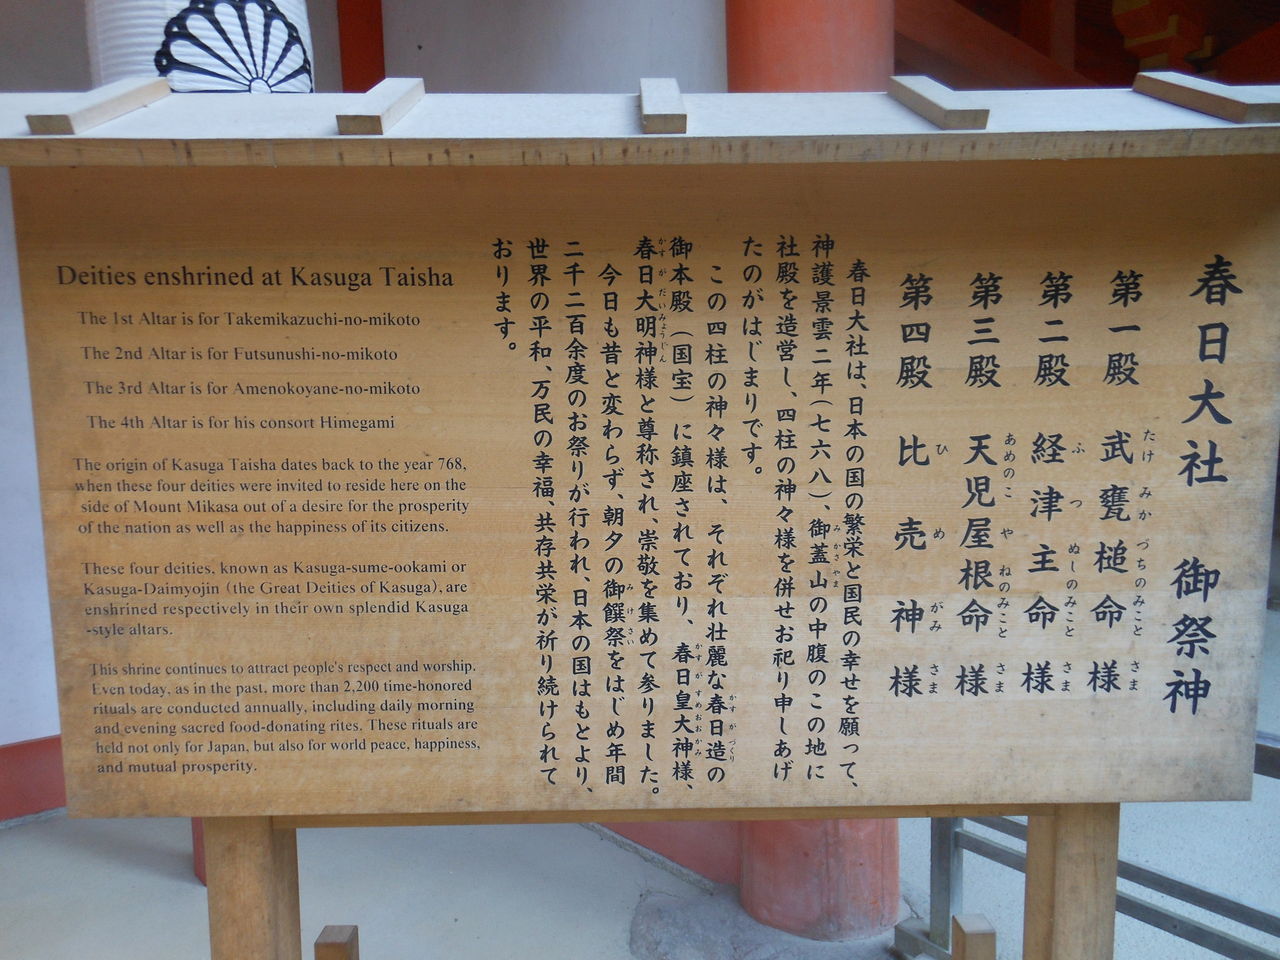 春日大社 御祭神
第一殿 武甕槌命様
たけ みか づちのみこと さま
第二殿 経津主命様
ふ つ ぬしのみこと さま
第三殿 天児屋根命様
あめのこ や ねのみこと さま
第四殿 比売神様
ひ め がみ さま
春日大社は、日本の国の繁栄と国民の幸せを願って、
神護景雲二年(七六八)、御蓋山の中腹のこの地に
みかさやま
社殿を造営し、四柱の神々様を併せお祀り申しあげ
たのがはじまりです。
この四柱の神々様は、それぞれ壮麗な春日造の
かすがづくり
御本殿(国宝)に鎮座されており、春日皇大神様、
かすがすめおおかみ
春日大明神様と尊称され、崇敬を集めて参りました。
かすがだいみょうじん
今日も昔と変わらず、朝夕の御饌祭をはじめ年間
みけさい
二千二百余度のお祭りが行われ、日本の国はもとより、
世界の平和、万民の幸福、共存共栄が祈り続けられて
おります。
Deities enshrined at Kasuga Taisha
The 1st Altar is for Takemikazuchi-no-mikoto
The 2nd Altar is for Futsunushi-no-mikoto
The 3rd Altar is for Amenokoyane-no-mikoto
The 4th Altar is for his consort Himegami
The origin of Kasuga Taisha dates back to the year 768,
when these four deities were invited to reside here on the
side of Mount Mikasa out of a desire for the prosperity
of the nation as well as the happiness of its citizens.
These four deities, known as Kasuga-sume-ookami or
Kasuga-Daimyojin (the Great Deities of Kasuga), are
enshrined respectively in their own splendid Kasuga
-style altars.
This shrine continues to attract people's respect and worship.
Even today, as in the past, more than 2,200 time-honored
rituals are conducted annually, including daily morning
and evening sacred food-donating rites. These rituals are
held not only for Japan, but also for world peace, happiness,
and mutual prosperity.